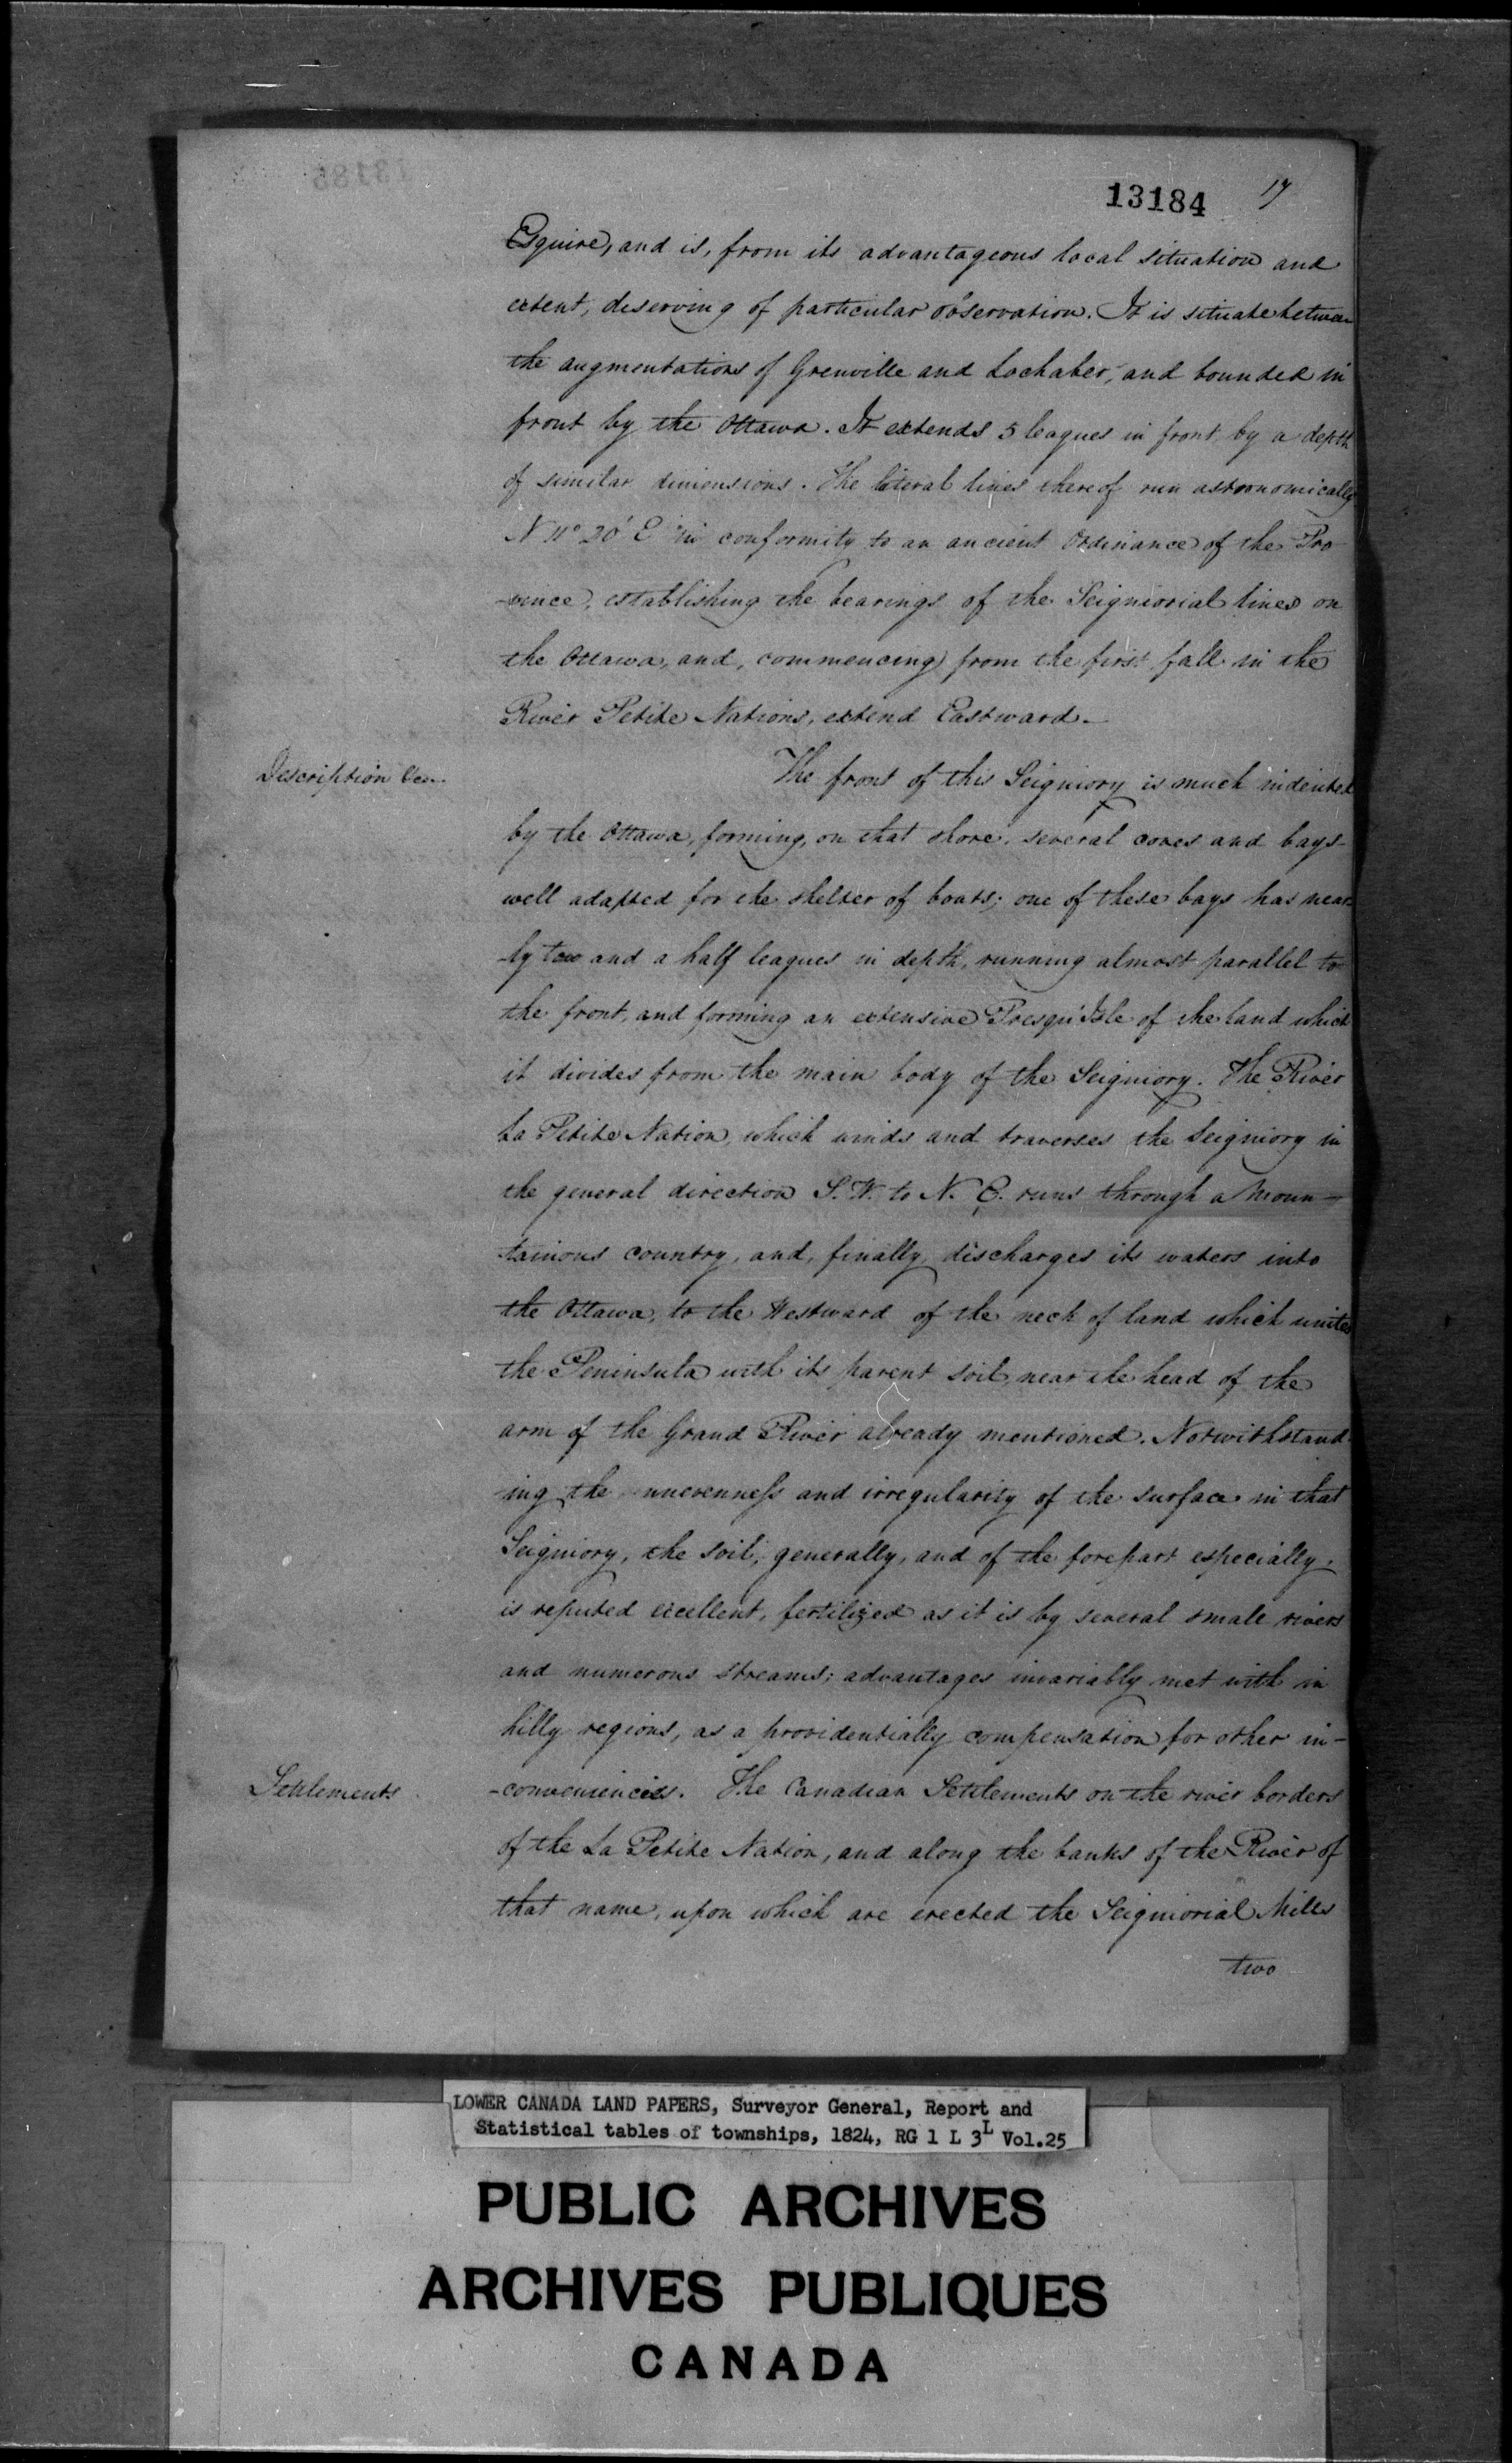 13184 17
Esquire, and is, from its advantageous local situation and
extent, deserving of particular observation. It is situate between
the augmentations of Grenville and Lochaber, and bounded in
front by the Ottawa. It extends 5 leagues in front by a depth
of similar dimensions. The lateral lines thereof run astronomically
N 11° 20' E in conformity to an ancient Ordinance of the Pro
-vince, establishing the bearings of the Seigniorial lines on
the Ottawa, and, commencing from the first fall in the
River Petite Nations, extend Eastward.
Description
The front of this Seigniory is much indented
by the Ottawa, forming, on that shore, several coves and bays
well adapted for the shelter of boats; one of these bays has near
-ly two and a half leagues in depth, running almost parallel to
the front, and forming an extensive Presqu'Isle of the land which
it divides from the main body of the Seigniory. The River
La Petite Nation, which winds and traverses the Seigniory in
the general direction S. W. to N. E. runs through a Moun-
tainous country, and, finally, discharges its waters into
the Ottawa, to the Westward of the neck of land which unites
the Peninsula with its parent soil, near the head of the
arm of the Grand River already mentioned. Notwithstand
-ing the unevenness and irregularity of the surface in that
Seigniory, the soil, generally, and of the forepart especially,
is reputed excellent, fertilized as it is by several small rivers
and numerous streams; advantages invariably met with in
hilly regions, as a providentially compensation for other in-
Settlements
-conveniencies. The Canadian Settlements on the river borders
of the La Petite Nation, and along the banks of the River of
that name, upon which are erected the Seigniorial Mills
two
LOWER CANADA LAND PAPERS, Surveyor General, Report and
Statistical tables of townships, 1824, RG 1 L 3L Vol.25
PUBLIC ARCHIVES
ARCHIVES PUBLIQUES
CANADA